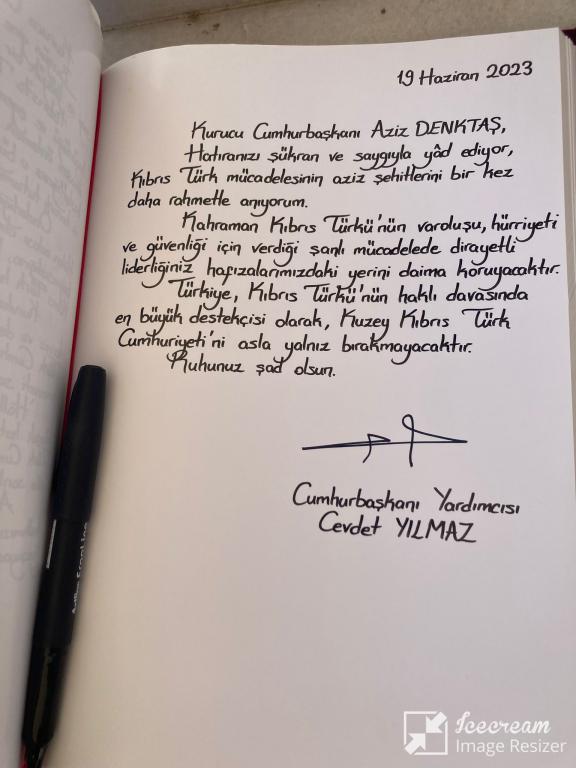 19 Haziran 2023
Kurucu Cumhurbaşkanı Aziz DENKTAŞ,
Hatıranızı şükran ve saygıyla yâd ediyor,
Kıbrıs Türk mücadelesinin aziz şehitlerini bir kez
daha rahmetle anıyorum.
Kahraman Kıbrıs Türkü'nün varoluşu, hürriyeti
ve güvenliği için verdiği şanlı mücadelede dirayetli
liderliğiniz hafızalarımızdaki yerini daima koruyacaktır.
Türkiye, Kıbrıs Türkü'nün haklı davasında
en büyük destekçisi olarak, Kuzey Kıbrıs Türk
Cumhuriyeti'ni asla yalnız bırakmayacaktır.
Ruhunuz şad olsun.
Cumhurbaşkanı Yardımcısı
Cevdet YILMAZ
Icecream
Image Resizer